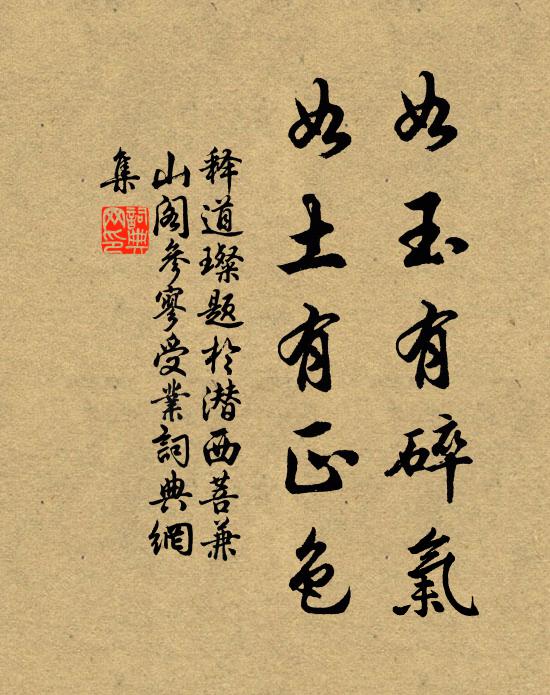 如玉有碎氣
如土有正色
释道璨题於潜西菩兼
山阁參寥受業詞典網
集
詞典网印